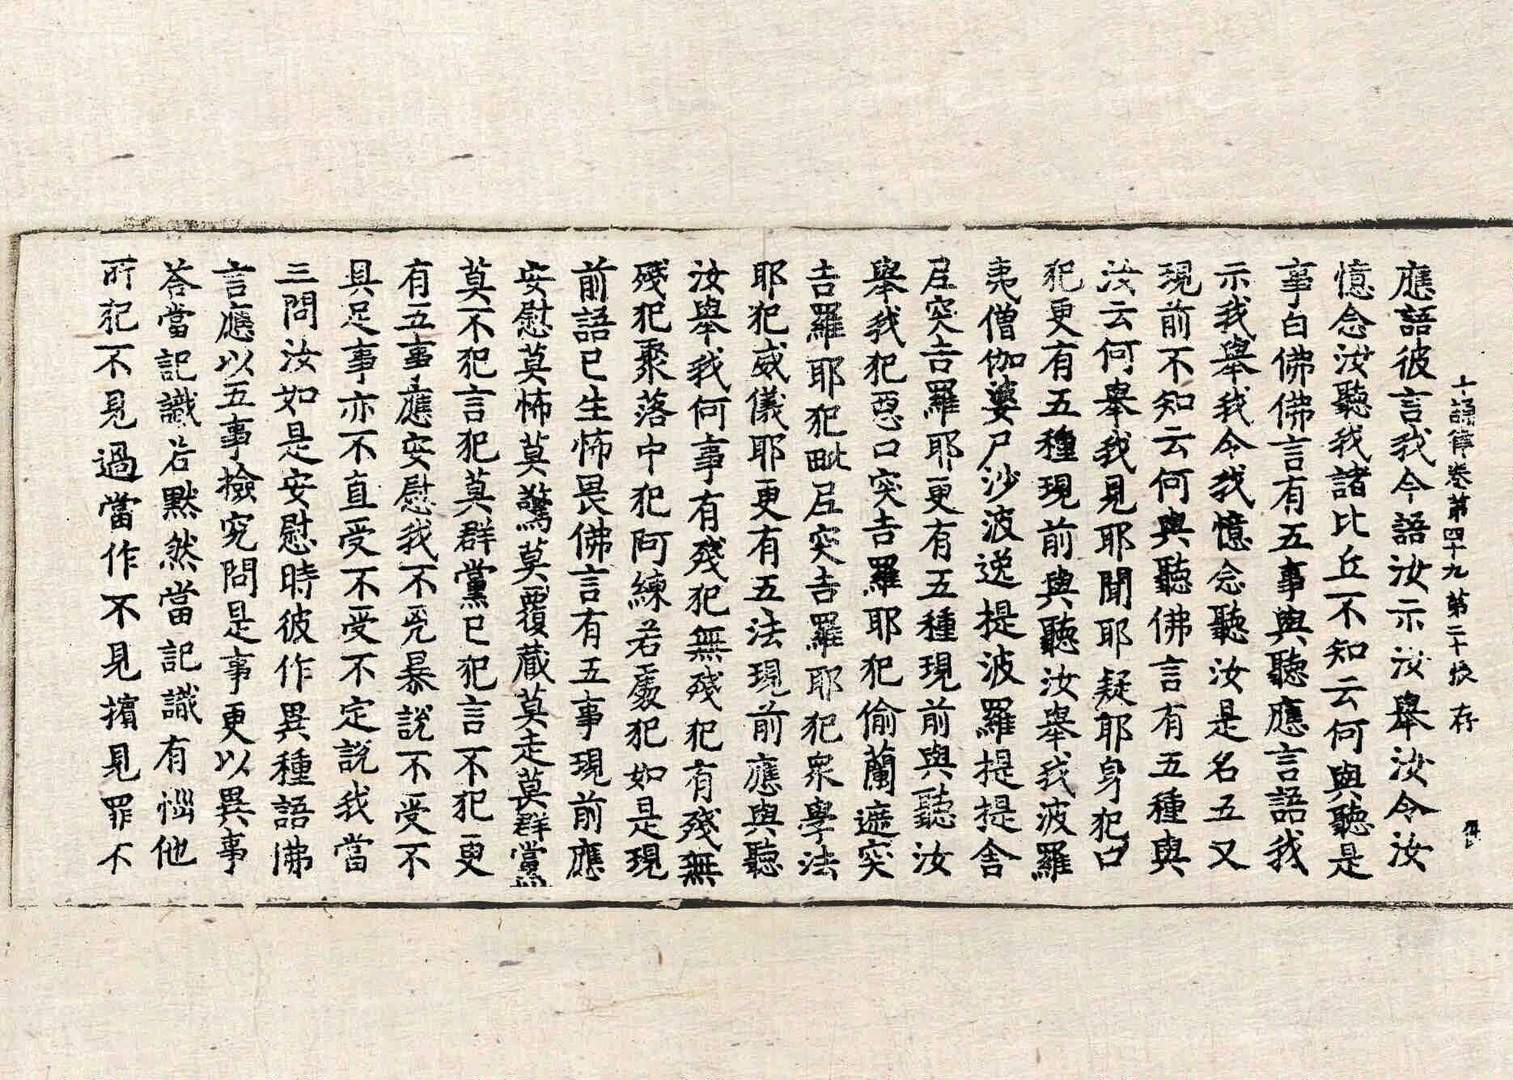 應語彼言我今語汝示汝舉汝令汝
十誦律卷第四十九 第二十張 存
憶念汝聽我諸比丘不知云何與聽是
事白佛佛言有五事與聽應言語我
示我舉我令我憶念聽汝是名五又
現前不知云何與聽佛言有五種與
汝云何舉我見耶聞耶疑耶身犯口
犯更有五種現前與聽汝舉我波羅
夷僧伽婆尸沙波逸提波羅提提舍
尼突吉羅耶更有五種現前與聽汝
舉我犯惡口突吉羅耶犯偷蘭遮突
吉羅耶犯毗尼突吉羅耶犯眾學法
耶犯威儀耶更有五法現前應與聽
汝舉我何事有殘犯無殘犯有殘無
殘犯聚落中犯阿練若處犯如是現
前語已生怖畏佛言有五事現前應
安慰莫怖莫驚莫覆藏莫走莫群黨
莫不犯言犯莫群黨已犯言不犯更
有五事應安慰我不兇暴說不受不
具足事亦不直受不受不定說我當
三問汝如是安慰時彼作異種語佛
言應以五事撿究問是事更以異事
荅當記識若默然當記識有惱他
所犯不見過當作不見擯見罪不